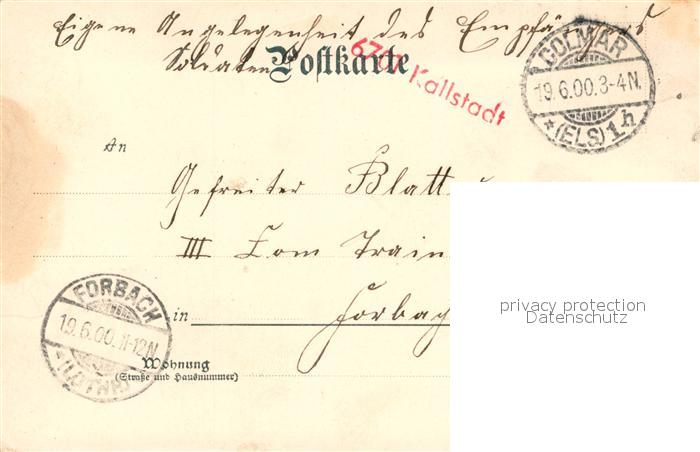 Eigene Angelegenheit des Empfängers
Soldaten
Postkarte
6701 Kallstadt
COLMAR
19.6.00.3-4N.
*(ELS) 1h
An
Gefreiter Blatt
III Com Train
in Forbach
FORBACH
19.6.00.11-12N
*(LOTHR)
Wohnung
(Straße und Hausnummer)
privacy protection
Datenschutz